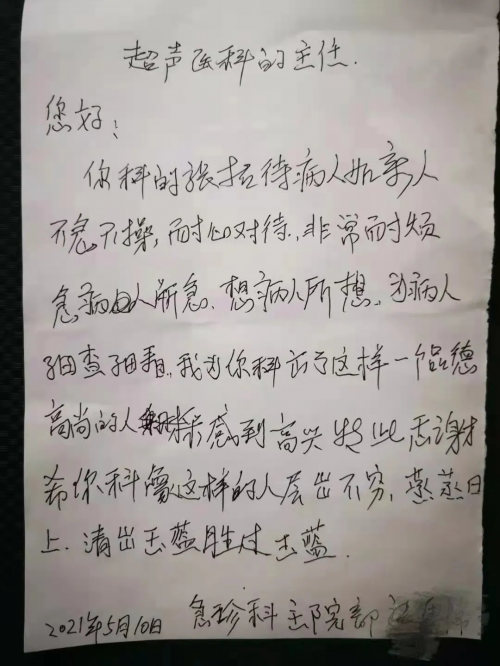 超声医科的主任.
您好:
你科的张招待病人如亲人
不急不操,而心对待,非常耐烦
急病人所急.想病人所想,为病人
细查细看,我为你科出了这样一个品德
高尚的人感到高兴 特此感谢
希你科像这样的人层出不穷,蒸蒸日
上.清出于蓝胜过于蓝.
2021年5月10日 急珍科 住院部